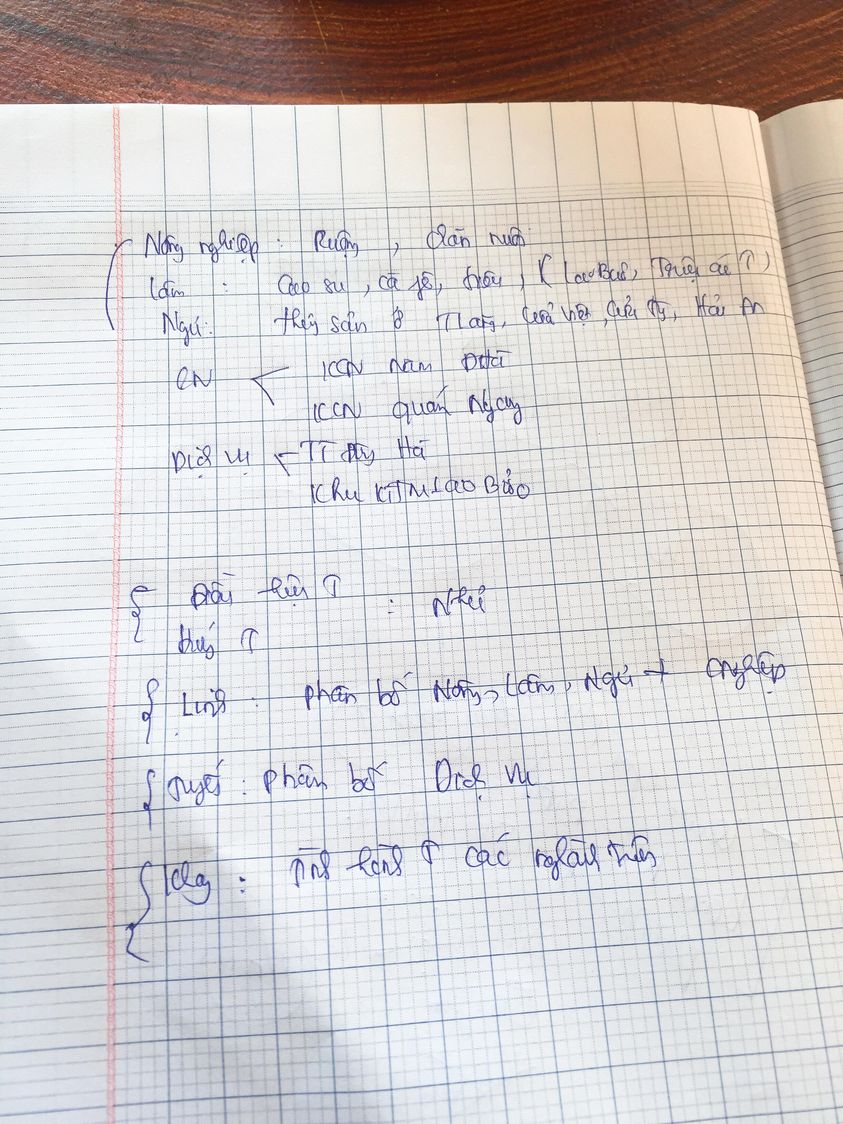 Nông nghiệp : Ruộng , chăn nuôi
Lâm : Cao su , cà fê, tiêu, ( Lao Bảo,
Ngư: thủy sản ở T Lăng, Cửa Việt , Cửa Tù, Hải An
CN KCN Nam ĐHà
KCN Quán Ngang
Dịch vụ TT Đông Hà
Khu KTTM Lao Bảo
Điều kiện
: Như
Linh : phân bố Nông, Lâm, Ngư + Cnghiệp
Tuyết : phân bố Dịch vụ
: Tình hình các ngành trên